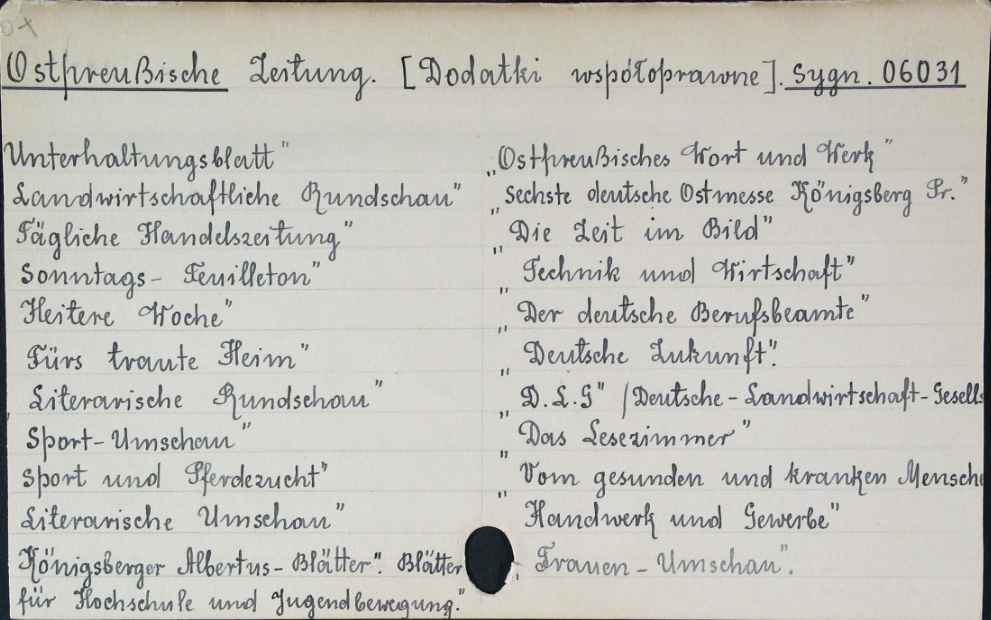 Ostpreußische Zeitung. [Dodatki współoprawne]. Sygn. 06031
Unterhaltungsblatt"
Landwirtschaftliche Rundschau"
Tägliche Handelszeitung"
Sonntags- Feuilleton"
Heitere Woche"
Fürs traute Heim"
Literarische Rundschau"
Sport-Umschau"
Sport und Pferdezucht"
Literarische Umschau"
Königsberger Albertus-Blätter". Blätter
für Hochschule und Jugendbewegung."
„Ostpreußisches Wort und Werk"
„Sechste deutsche Ostmesse Königsberg Pr."
„Die Zeit im Bild"
„Technik und Wirtschaft"
„Der deutsche Berufsbeamte"
„Deutsche Zukunft".
„D.L.G" /Deutsche-Landwirtschaft-Gesells
„Das Lesezimmer"
„Vom gesunden und kranken Mensche
„Handwerk und Gewerbe"
Frauen-Umschau".